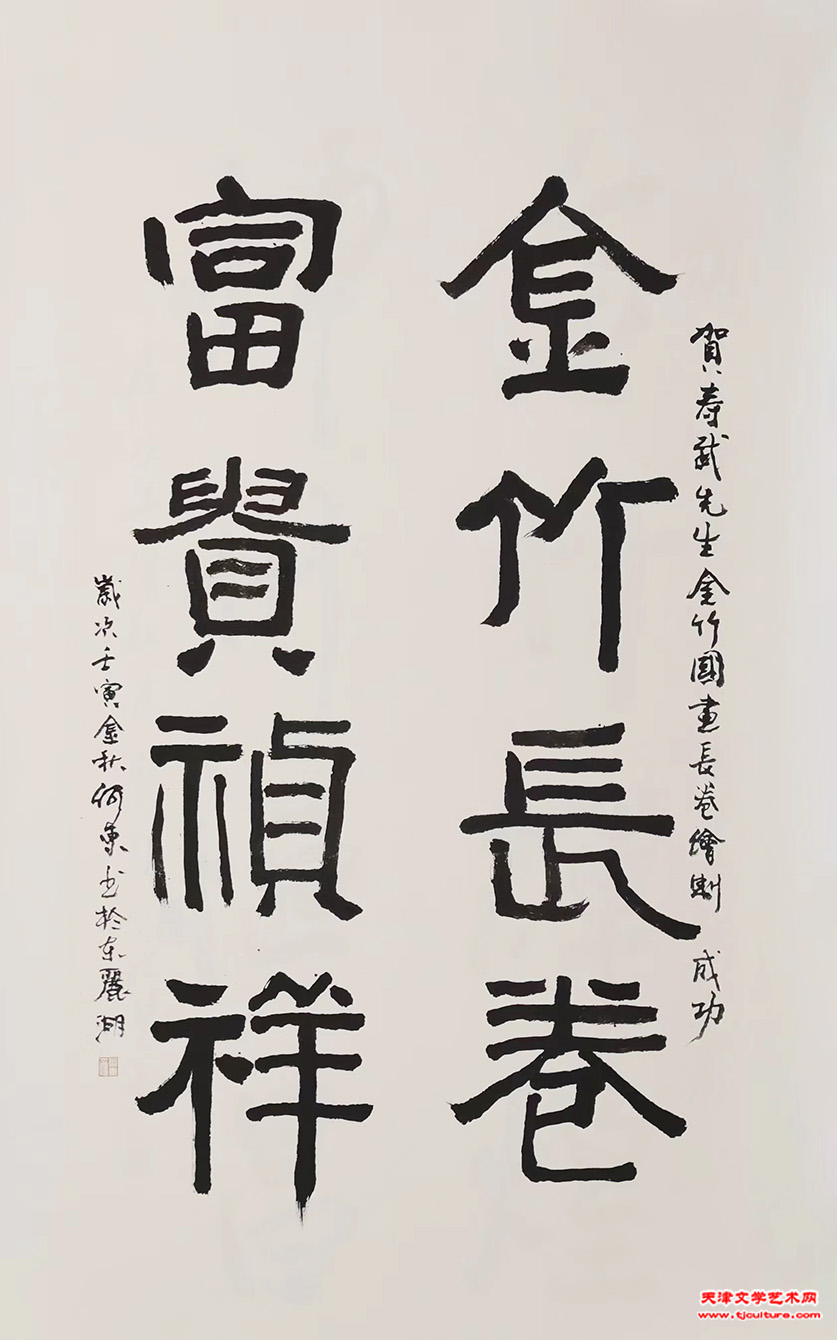 賀壽武先生金竹國畫長卷繪製成功
金竹長卷
富貴禎祥
歲次壬寅金秋何東書於东麗湖
天津文学艺术网
www.tjculture.com